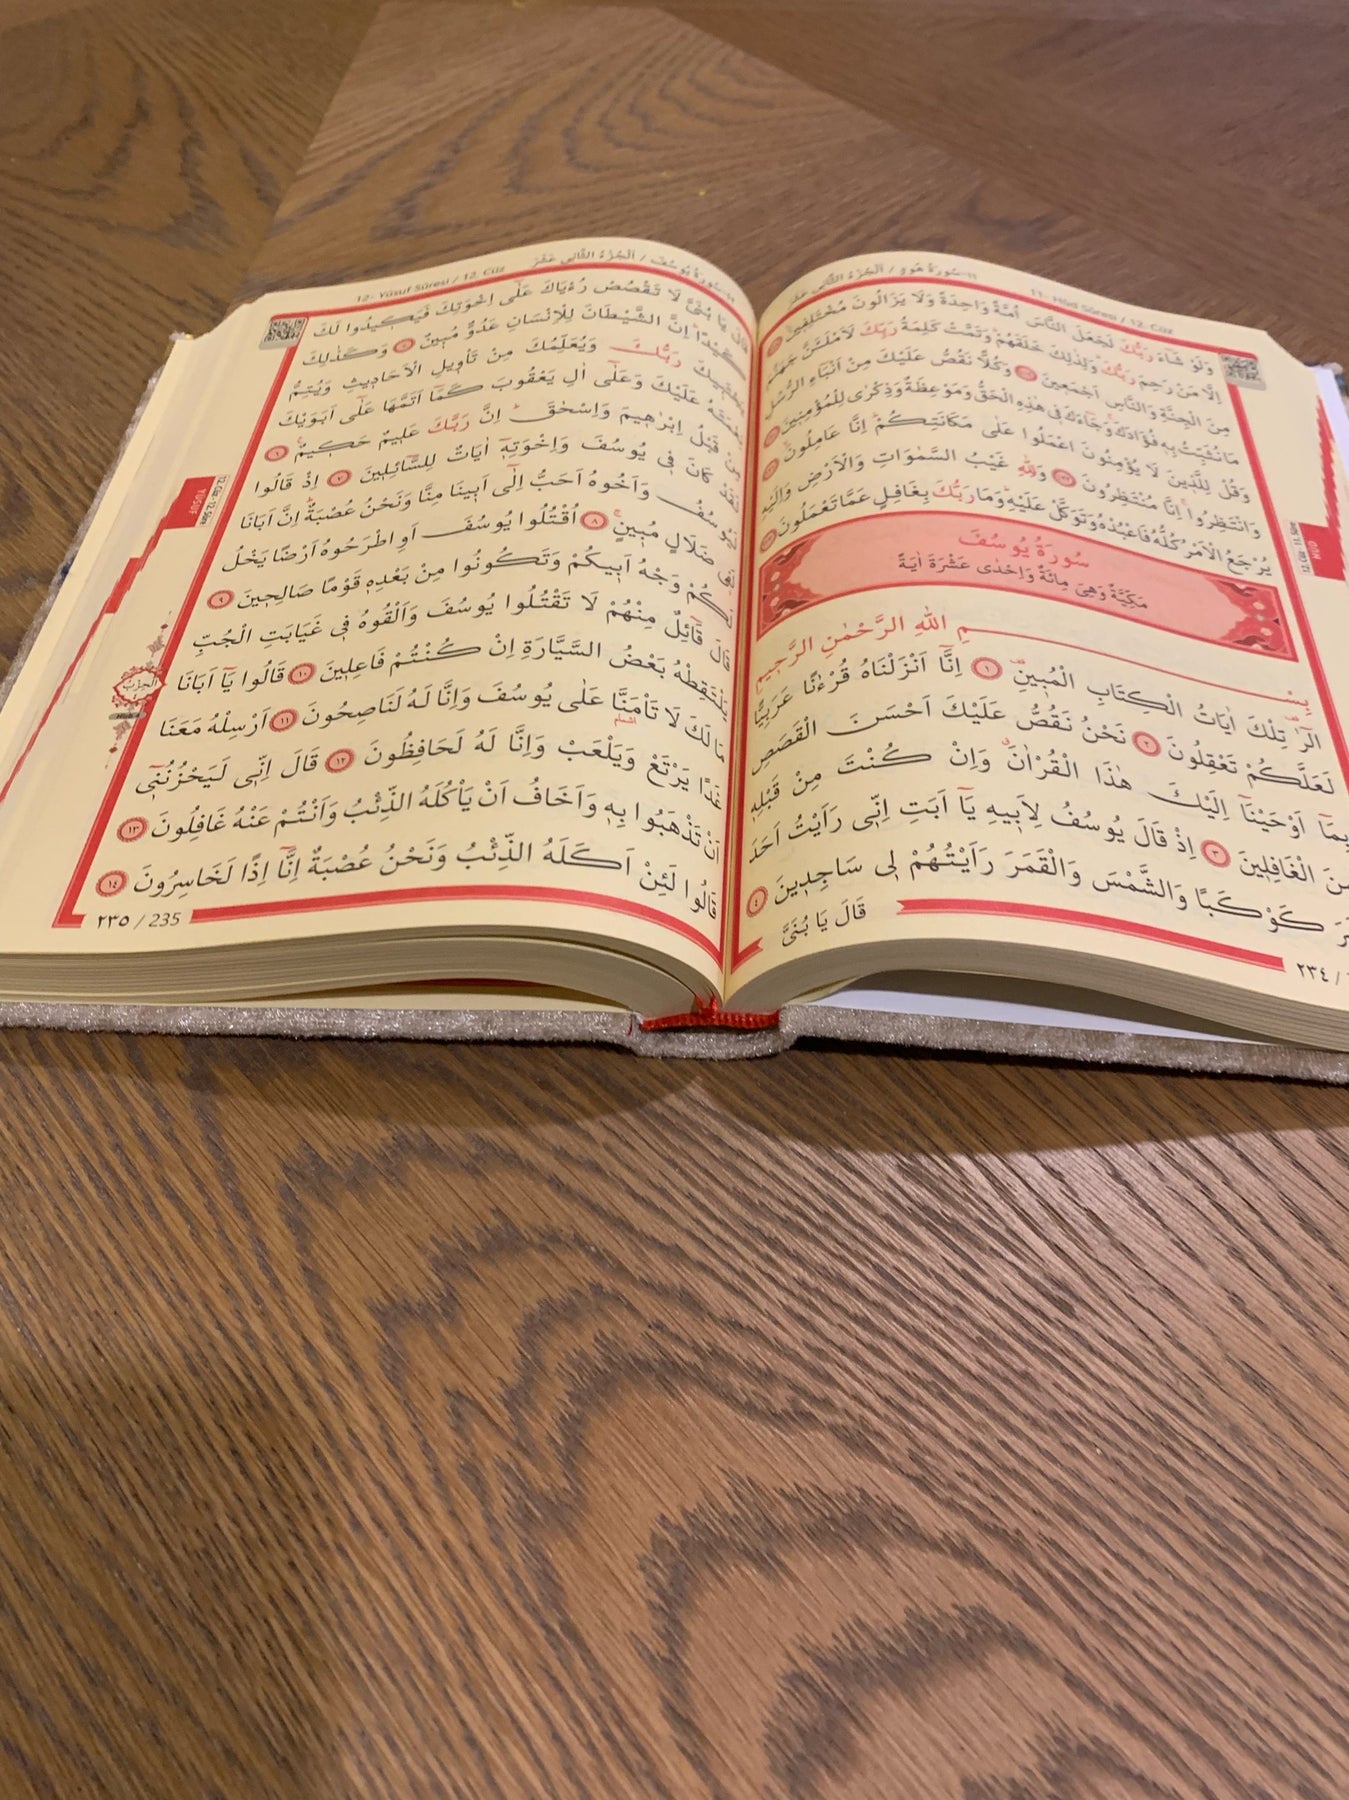 ١١-سُورَةُ هُودٍ / اَلْجُزْءُ الثَّانِي عَشَرَ
11- Hûd Sûresi / 12. Cüz
وَلَوْ شَاءَ رَبُّكَ لَجَعَلَ النَّاسَ اُمَّةً وَاحِدَةً وَلَا يَزَالُونَ مُخْتَلِفِينَ
اِلَّا مَنْ رَحِمَ رَبُّكَ وَلِذٰلِكَ خَلَقَهُمْ وَتَمَّتْ كَلِمَةُ رَبِّكَ لَاَمْلَـَٔنَّ جَهَنَّمَ
مِنَ الْجِنَّةِ وَالنَّاسِ اَجْمَعِينَ وَكُلًّا نَقُصُّ عَلَيْكَ مِنْ اَنْبَاءِ الرُّسُلِ
مَا نُثَبِّتُ بِهِ فُؤَادَكَ وَجَاءَكَ فِي هٰذِهِ الْحَقُّ وَمَوْعِظَةٌ وَذِكْرٰى لِلْمُؤْمِنِينَ
وَقُلْ لِلَّذِينَ لَا يُؤْمِنُونَ اعْمَلُوا عَلٰى مَكَانَتِكُمْ اِنَّا عَامِلُونَ
وَانْتَظِرُوا اِنَّا مُنْتَظِرُونَ وَلِلّٰهِ غَيْبُ السَّمٰوَاتِ وَالْاَرْضِ وَاِلَيْهِ
يُرْجَعُ الْاَمْرُ كُلُّهُ فَاعْبُدْهُ وَتَوَكَّلْ عَلَيْهِ وَمَا رَبُّكَ بِغَافِلٍ عَمَّا تَعْمَلُونَ
سُورَةُ يُوسُفَ
مَكِّيَّةٌ وَهِيَ مِائَةٌ وَاِحْدٰى عَشْرَةَ اٰيَةً
بِسْــــمِ اللهِ الرَّحْمٰنِ الرَّحِيمِ
الٓرٰ تِلْكَ اٰيَاتُ الْكِتَابِ الْمُبِينِ ١ اِنَّا اَنْزَلْنَاهُ قُرْءٰنًا عَرَبِيًّا
لَعَلَّكُمْ تَعْقِلُونَ ٢ نَحْنُ نَقُصُّ عَلَيْكَ اَحْسَنَ الْقَصَصِ
بِمَا اَوْحَيْنَا اِلَيْكَ هٰذَا الْقُرْاٰنَ وَاِنْ كُنْتَ مِنْ قَبْلِهِ
الْغَافِلِينَ ٣ اِذْ قَالَ يُوسُفُ لِاَبِيهِ يَا اَبَتِ اِنِّي رَاَيْتُ اَحَدَ
كَوْكَبًا وَالشَّمْسَ وَالْقَمَرَ رَاَيْتُهُمْ لِي سَاجِدِينَ ٤
قَالَ يَا بُنَيَّ
٢٣٤ /
12. Cüz 11. Sûre
HUD
١٢-سُورَةُ يُوسُفَ / اَلْجُزْءُ الثَّانِي عَشَرَ
12- Yûsuf Sûresi / 12. Cüz
قَالَ يَا بُنَيَّ لَا تَقْصُصْ رُءْيَاكَ عَلٰى اِخْوَتِكَ فَيَكِيدُوا لَكَ
كَيْدًا اِنَّ الشَّيْطَانَ لِلْاِنْسَانِ عَدُوٌّ مُبِينٌ ٥ وَكَذٰلِكَ
يَجْتَبِيكَ رَبُّكَ وَيُعَلِّمُكَ مِنْ تَأْوِيلِ الْاَحَادِيثِ وَيُتِمُّ
نِعْمَتَهُ عَلَيْكَ وَعَلٰى اٰلِ يَعْقُوبَ كَمَا اَتَمَّهَا عَلٰى اَبَوَيْكَ
مِنْ قَبْلُ اِبْرٰهِيمَ وَاِسْحٰقَ اِنَّ رَبَّكَ عَلِيمٌ حَكِيمٌ ٦
لَقَدْ كَانَ فِي يُوسُفَ وَاِخْوَتِهِ اٰيَاتٌ لِلسَّائِلِينَ ٧ اِذْ قَالُوا
لَيُوسُفُ وَاَخُوهُ اَحَبُّ اِلٰى اَبِينَا مِنَّا وَنَحْنُ عُصْبَةٌ اِنَّ اَبَانَا
لَفِي ضَلَالٍ مُبِينٍ ٨ اُقْتُلُوا يُوسُفَ اَوِ اطْرَحُوهُ اَرْضًا يَخْلُ
لَكُمْ وَجْهُ اَبِيكُمْ وَتَكُونُوا مِنْ بَعْدِهِ قَوْمًا صَالِحِينَ ٩
قَالَ قَائِلٌ مِنْهُمْ لَا تَقْتُلُوا يُوسُفَ وَاَلْقُوهُ فِي غَيَابَتِ الْجُبِّ
يَلْتَقِطْهُ بَعْضُ السَّيَّارَةِ اِنْ كُنْتُمْ فَاعِلِينَ ١٠ قَالُوا يَا اَبَانَا
مَا لَكَ لَا تَأْمَنَّا عَلٰى يُوسُفَ وَاِنَّا لَهُ لَنَاصِحُونَ ١١ اَرْسِلْهُ مَعَنَا
غَدًا يَرْتَعْ وَيَلْعَبْ وَاِنَّا لَهُ لَحَافِظُونَ ١٢ قَالَ اِنِّي لَيَحْزُنُنِي
اَنْ تَذْهَبُوا بِهِ وَاَخَافُ اَنْ يَأْكُلَهُ الذِّئْبُ وَاَنْتُمْ عَنْهُ غَافِلُونَ ١٣
قَالُوا لَئِنْ اَكَلَهُ الذِّئْبُ وَنَحْنُ عُصْبَةٌ اِنَّا اِذًا لَخَاسِرُونَ ١٤
٢٣٥ / 235
12. Cüz - 12. Sûre
YUSUF
اَلْحِزْبُ